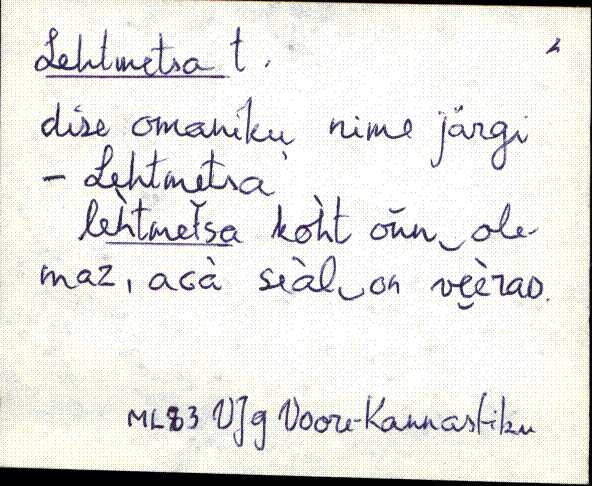 Lehtmetsa t.
omaniku nime järgi
– Lehtmetsa
lèhtmeťsa kòht oňn‿ole-
maz, acà sèàl‿on vèèrao.
ML83 VJg Voore-Kannastiku